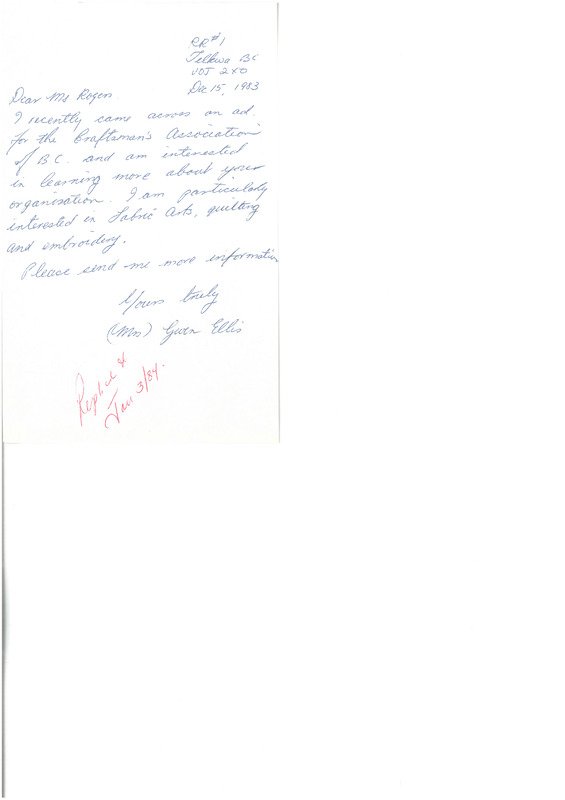 RR #1
Telkwa BC
V0J 2X0
Dec 15, 1983
Dear Ms Rogers
I recently came across an ad.
for the Craftsman's Association
of BC. and am interested
in learning more about your
organisation. I am particularly
interested in Fabric Arts, quilting
and embroidery.
Please send me more information
Yours truly
(Mrs) Gwen Ellis
Replied
Jan 3/84.